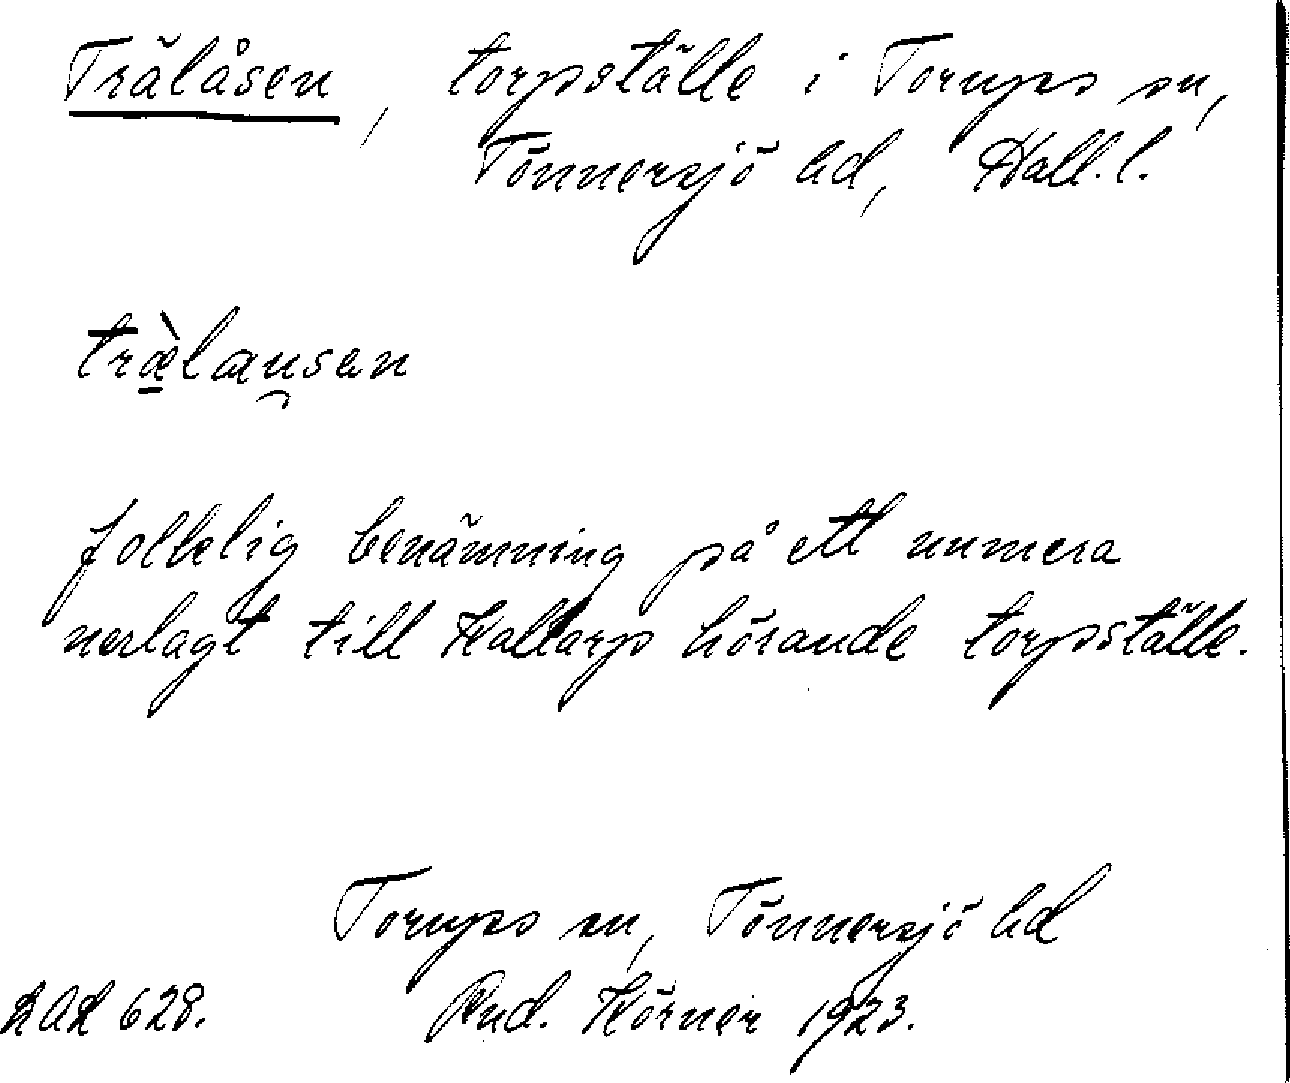 Trälåsen, torpställe i Torups sn,
Tönnersjö hd, Hall. l.
træ̀lau̯san
folkelig benämning på ett numera
nerlagt till Kallarp hörande torpställe.
Torups sn, Tönnersjö hd
LAL 628. Rud. Körner 1923.